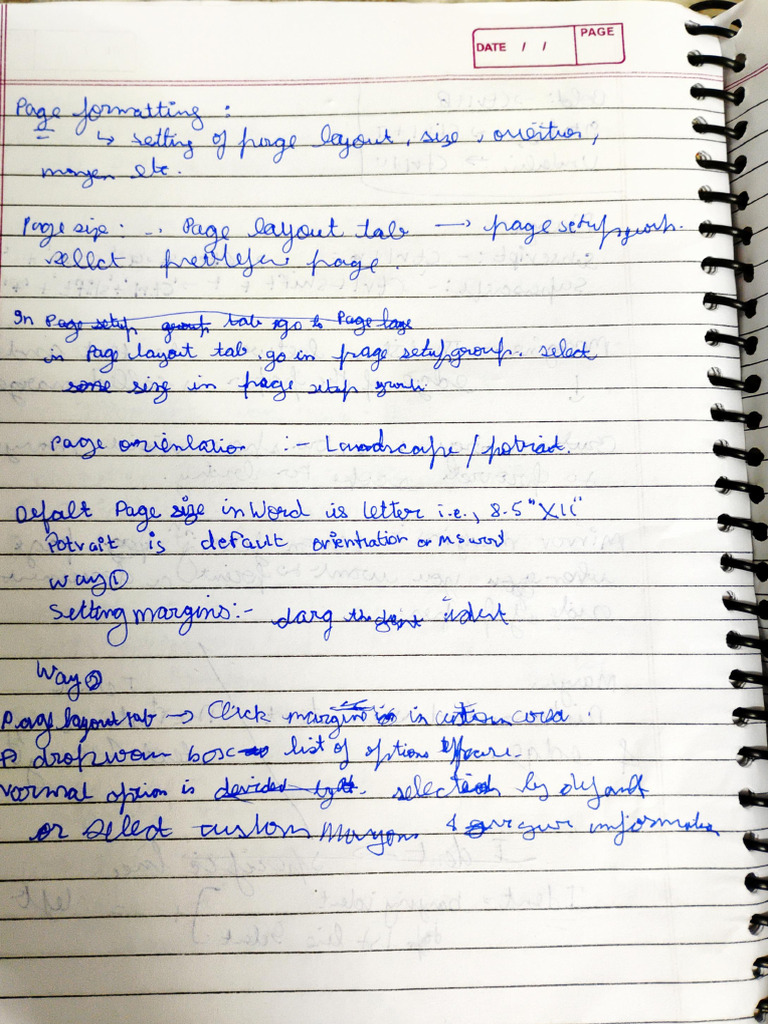 DATE / / PAGE
Page formatting :
↳ setting of page layout, size, orieition,
margen etc.
Page size : -. Page layout tab → page setup group.
sellect page.
In Page setup group tab go to Page
in Page layout tab, go in page setup group. select
some size in page setup
Page orientation :- Landscape / potriat.
Defalt Page size in Word is letter i.e., 8.5" X11"
Potrait is default orientration or MS word
Way ①
Setting margins :- darg ident
Way ②
Page layout tab → Click margine in
A dropwown box list of options
Normal option is devided by selected by default
or select custom Margon & give information